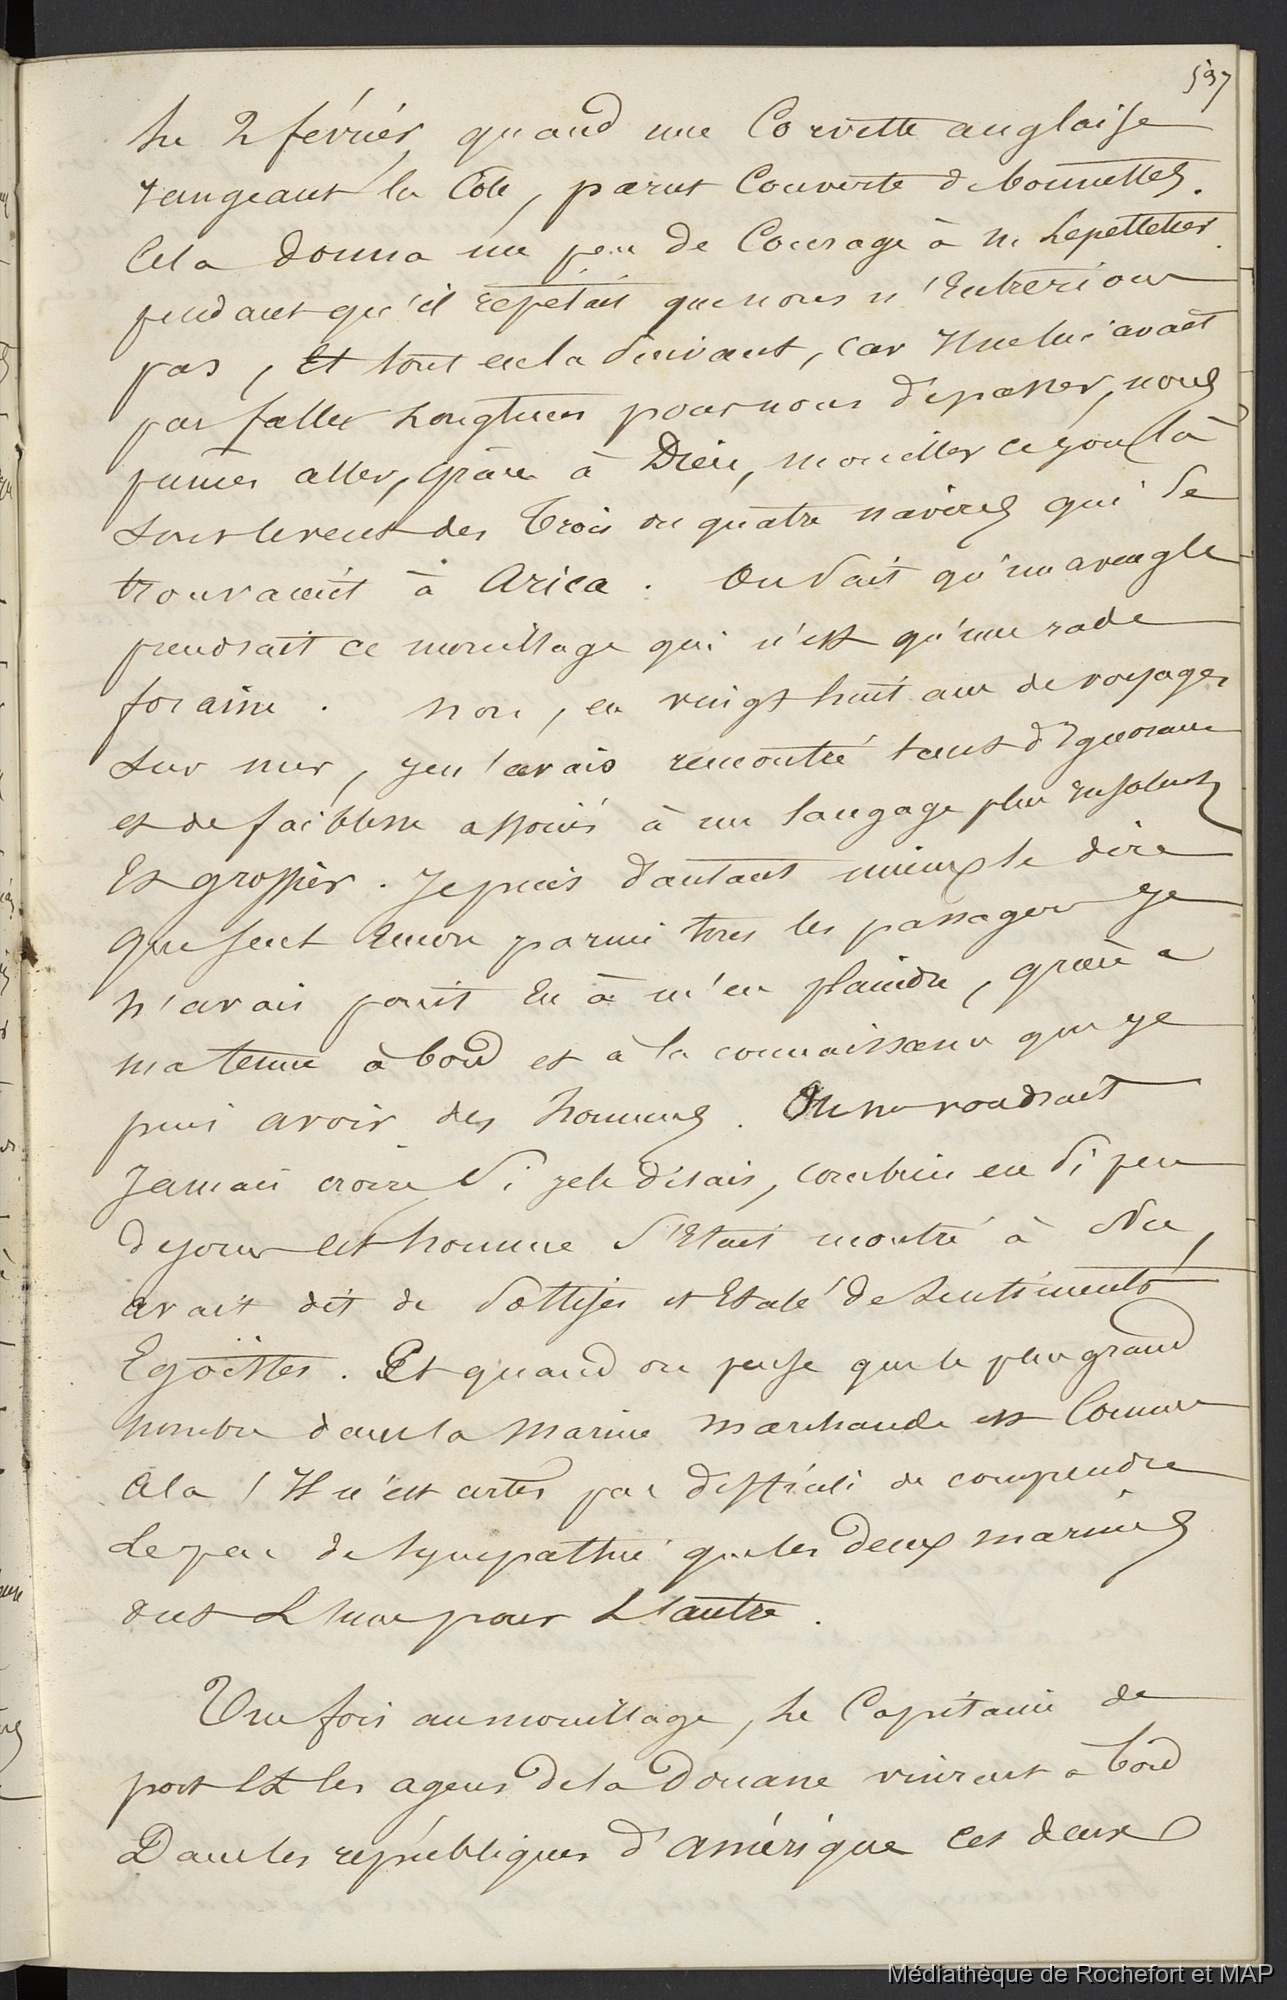 537
Le 2 février, quand une Corvette anglaise
rangeant la Côte, parut Couverte de bonnettes.
Cela donna un peu de Courage à M Lepelletier
pendant qu'il repétait que nous n'Entrerions
pas, Et tout en la suivant, car Il ne lui avait
pas fallu Longtems pour nous dépasser, nous
pumes aller, grâce à Dieu, mouiller ce jour là
sous le vent des trois ou quatre navires qui se
trouvaient à Arica. On sait qu'un aveugle
prendrait ce mouillage qui n'est qu'une rade
foraine. Non, en vingt huit ans de voyages
sur mer, je n'avais rencontré tant d'Ignorance
et de faiblesse associés à un langage plus insolent
Et grossier. Je puis d'autant mieux le dire
que seul Encore parmi tous les passagers je
n'avais point Eu à m'en plaindre, grâce à
ma tenue à bord et à la connaissance que je
puis avoir des hommes. On ne voudrait
Jamais croire si je le disais, combien en si peu
de jours cet homme s'Etait montré à Nu,
avait dit de sottises et Etalé de Sentiments
Egoïstes. Et quand on pense que le plus grand
nombre dans la Marine Marchande est Comme
cela ! Il n'est certes pas difficile de comprendre
Le peu de Sympathie que les deux marines
ont L'une pour L'autre.
Une fois au mouillage, Le Capitaine de
port Et les agens de la Douane vinrent à bord
Dans les républiques d'amérique ces deux
Médiathèque de Rochefort et MAP